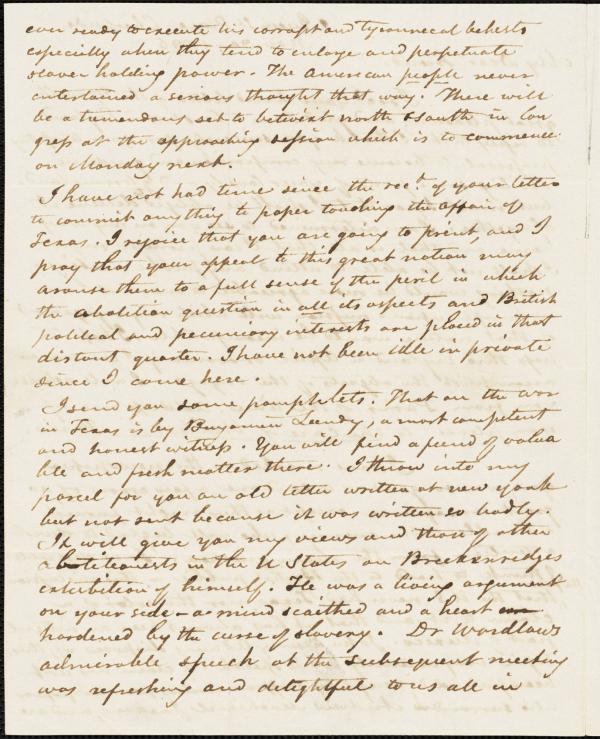 ever ready to execute his corrupt and tyrannecal behests
especially when they tend to enlarge and perpetuate
slave holding power. The American people never
entertained a serious thought that way. There will
be a tremendous set-to betwixt north & south in Con
gress at the approaching session which is to commence
on Monday next.
I have not had time since the rect. of your letter
to commit anything to paper touching the affair of
Texas. I rejoice that you are going to print, and I
pray that your appeal to this great nation may
arouse them to a full sense of the peril in which
the abolition question in all its aspects and British
political and pecuniary interests are placed in that
distant quarter. I have not been idle in private
since I came here.
I send you some pamphlets. That on the war
in Texas is by Benjamin Lundy, a most competent
and honest witness. You will find a fund of valua
ble and fresh matter there. I throw into my
parcel for you an old letter written at New York
but not sent because it was written so badly.
It will give you my views and those of other
abolitionists in the U States on Breckenridges
exhibition of himself. He was a living argument
on your side – a mind scaithed and a heart
hardened by the curse of slavery. Dr Wardlaws
admirable speech at the subsequent meeting
was refreshing and delightful to us all in